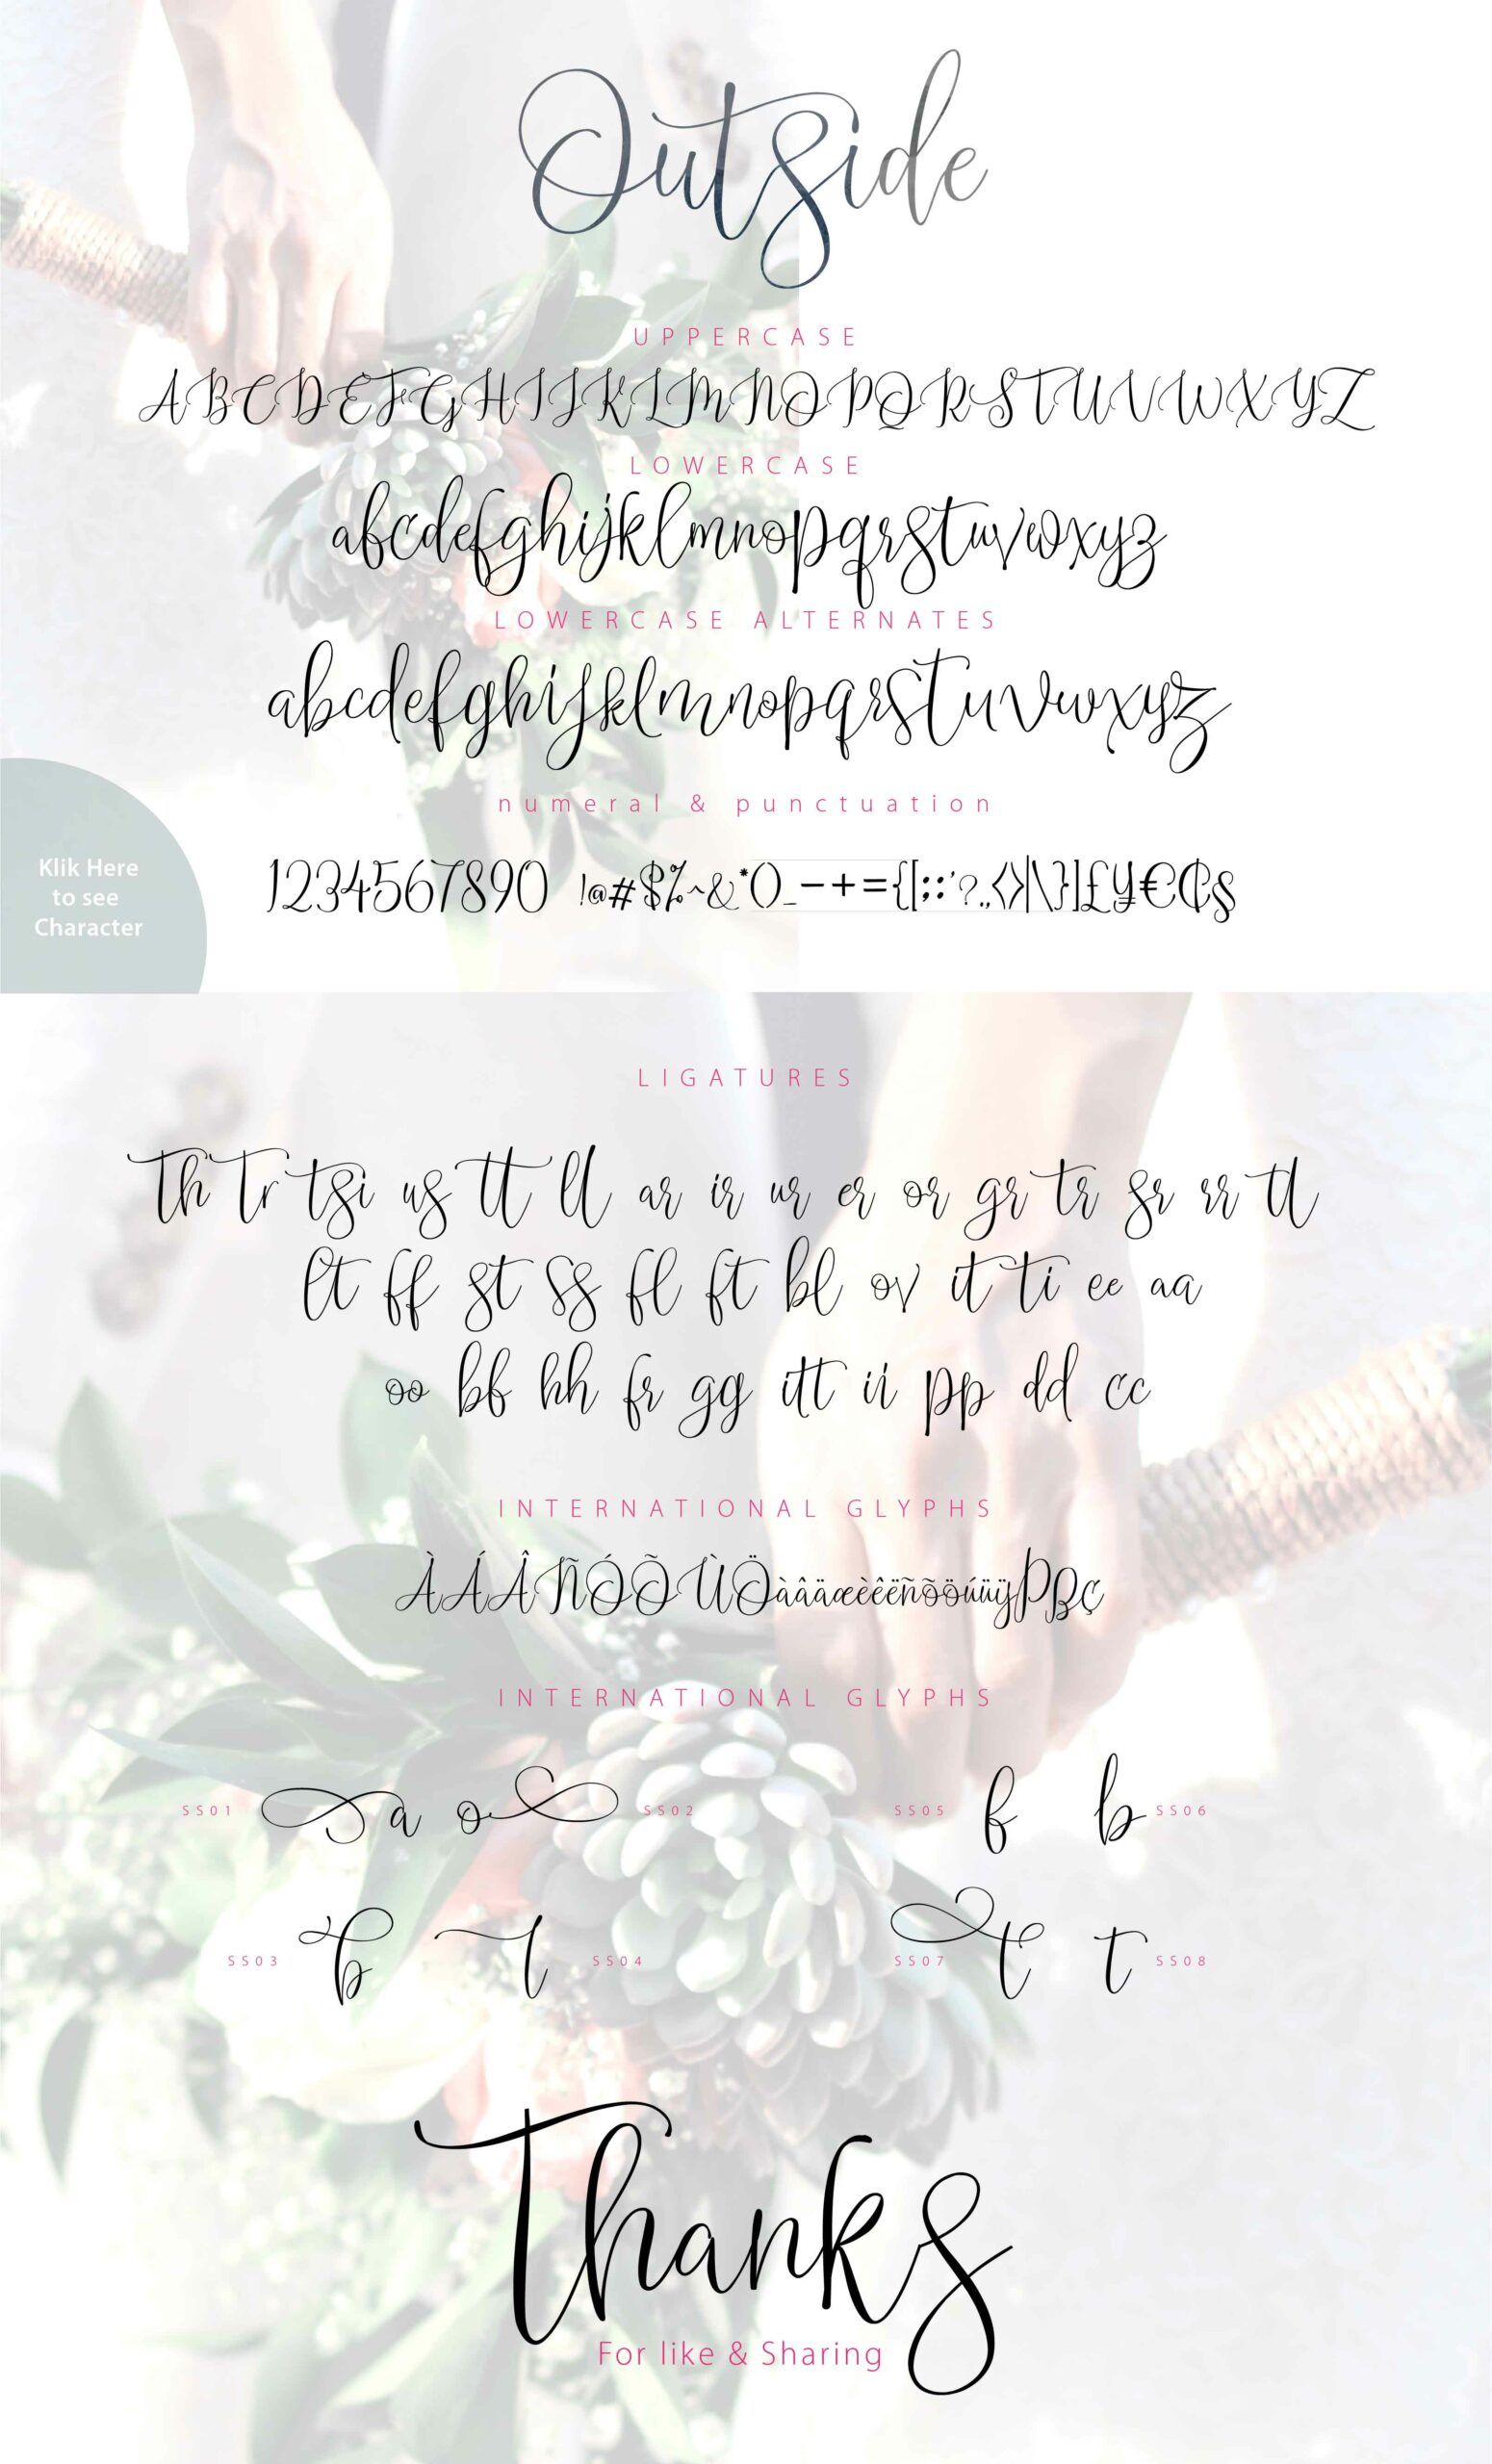 Outside
UPPERCASE
ABCDEFGHIJKLMNOPQRSTUVWXYZ
LOWERCASE
abcdefghijklmnopqrstuvwxyz
LOWERCASE ALTERNATES
abcdefghijklmnopqrstuvwxyz
numeral & punctuation
Klik Here
to see
Character
1234567890 !@#$%^&*()_−+={[;:'?.,<>|\}]£¥€₵§
LIGATURES
Th Tr tsi us tt ll ar ir ur er or gr tr sr rr tl
lt ff st ss fl ft bl ov it ti ee aa
oo bb hh fr gg itt ii pp dd cc
INTERNATIONAL GLYPHS
ÀÁÂÑÓÕÙÖàâäæèêëñõöúüÿÞßç
INTERNATIONAL GLYPHS
SS01 a o SS02 SS05 b b SS06
SS03 b t SS04 SS07 t t SS08
Thanks
For like & Sharing